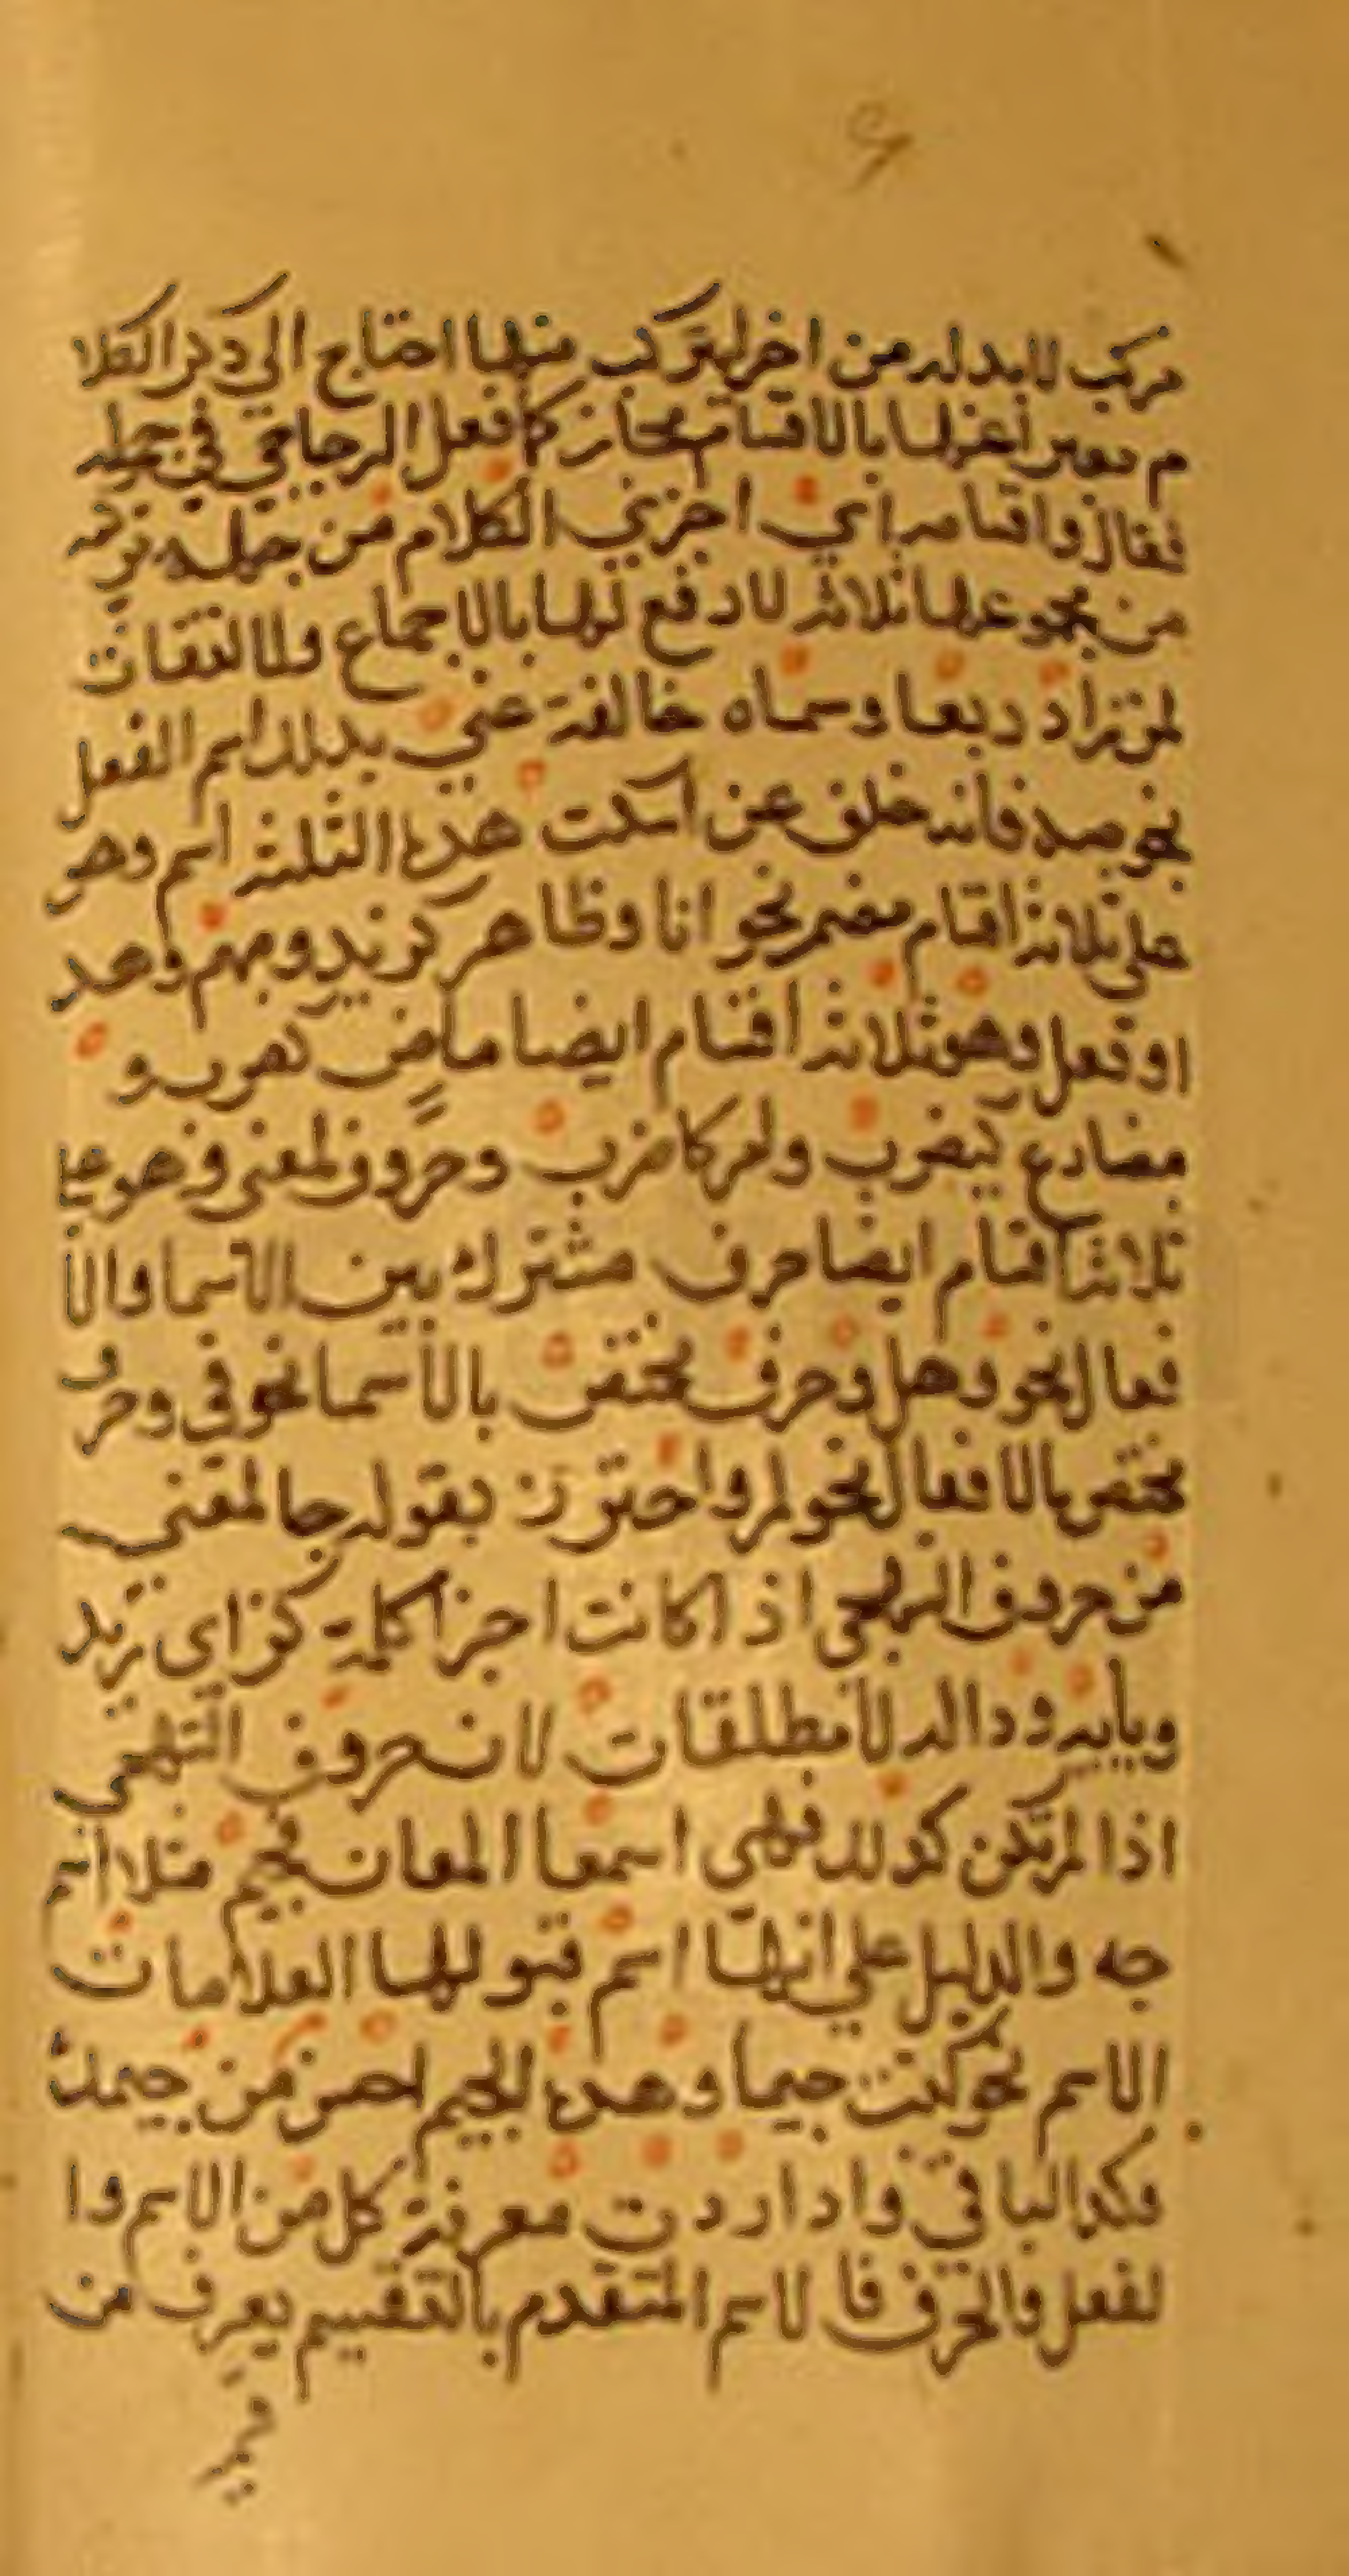 مركب لا بد له من اجزا يتركب منها احتاج الى ذكر الكلا
م معبر اعنها بالاقسام مجاز كما فعل الزجاجي في جمله
فقال واقسامه اي اجزي الكلام من جهله تركبه
من مجموعها ثلاثه لا رفع لها بالاجماع ولا التفات
لمن زاد ربعا وسماه خالفة عني بذلك اسم الفعل
نحو صه فانه خلف عن اسكت هذه الثلثه اسم وهو
على ثلاثة اقسام مضمر نحو انا وظاهر كزيد ومبهم وهذ
او فعل وهو ثلاثه اقسام ايضا ماض كضرب و
مضارع كيضرب وامر كاضرب وحروف لمعنى وهو على
ثلاثه اقسام ايضا حرف مشترك بين الاسما والا
فعال نحو هل وحرف يختص بالاسما نحو في وحرف
يختص بالافعال نحو لم واحترز بقوله جا لمعنى
من حروف التهجي اذا كانت اجزا كلمة كزاي زيد
ويائه وداله لا مطلقات لان حروف التهجي
اذا لم تكن كذلك فهي اسما المعان فجيم مثلا اسم
جه والدليل على انها اسم قبولها العلامات
الاسم نحو كتبت جيما وهذه الجيم احسن من جيمك
وكذا الباقي واذا اردت معرفة كل من الاسم وا
لفعل والحرف فا لاسم المتقدم بالتقسيم يعرف من